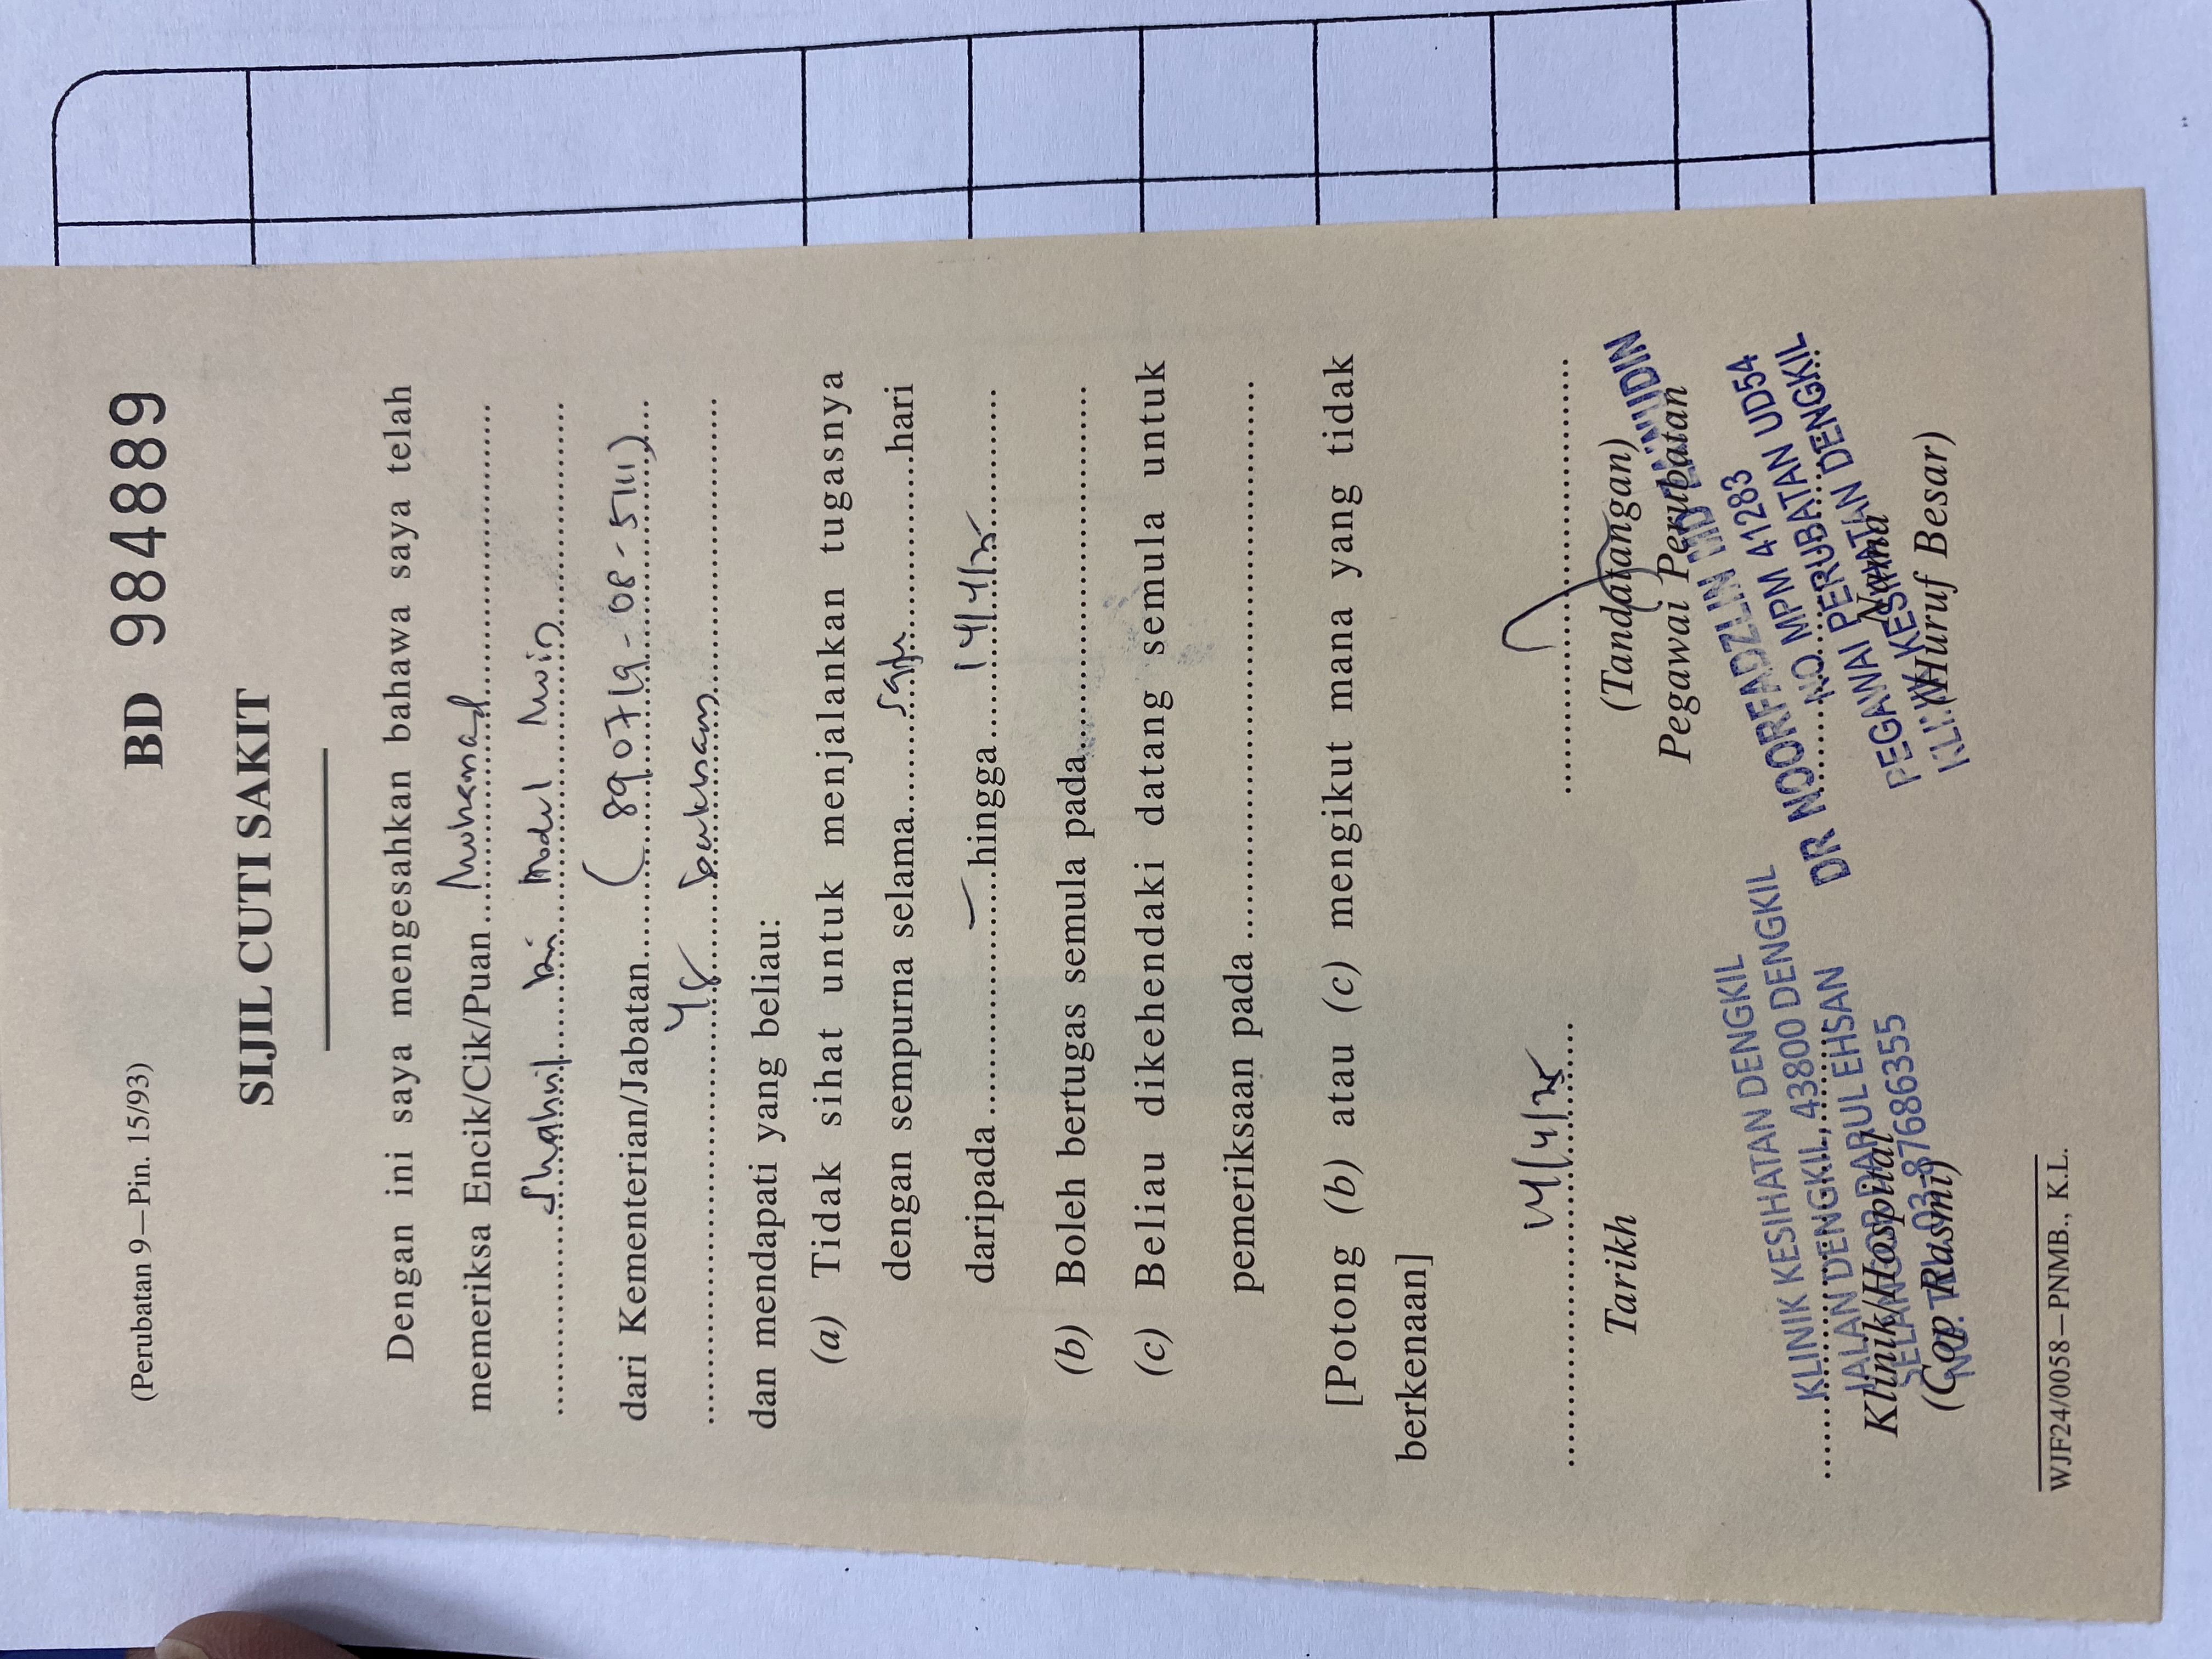 (Perubatan 9—Pin. 15/93)
BD 984889
SIJIL CUTI SAKIT
Dengan ini saya mengesahkan bahawa saya telah
memeriksa Encik/Cik/Puan Muhamad
Shahril bin Modul
dari Kementerian/Jabatan (890719-08-5111)
dan mendapati yang beliau:
(a) Tidak sihat untuk menjalankan tugasnya
dengan sempurna selama satu hari
daripada — hingga 14/4/25
(b) Boleh bertugas semula pada
(c) Beliau dikehendaki datang semula untuk
pemeriksaan pada
[Potong (b) atau (c) mengikut mana yang tidak
berkenaan]
14/4/25
Tarikh
(Tandatangan)
Pegawai Perubatan
KLINIK KESIHATAN DENGKIL
JALAN DENGKIL, 43800 DENGKIL
SELANGOR DARUL EHSAN
NO. TEL 03-87686355
Klinik/Hospital
(Cop Rasmi)
DR NOORFADZLIN MD
NO MPM 41283
PEGAWAI PERUBATAN UD54
KLINIK KESIHATAN DENGKIL
Nama
(Huruf Besar)
WJF24/0058—PNMB., K.L.